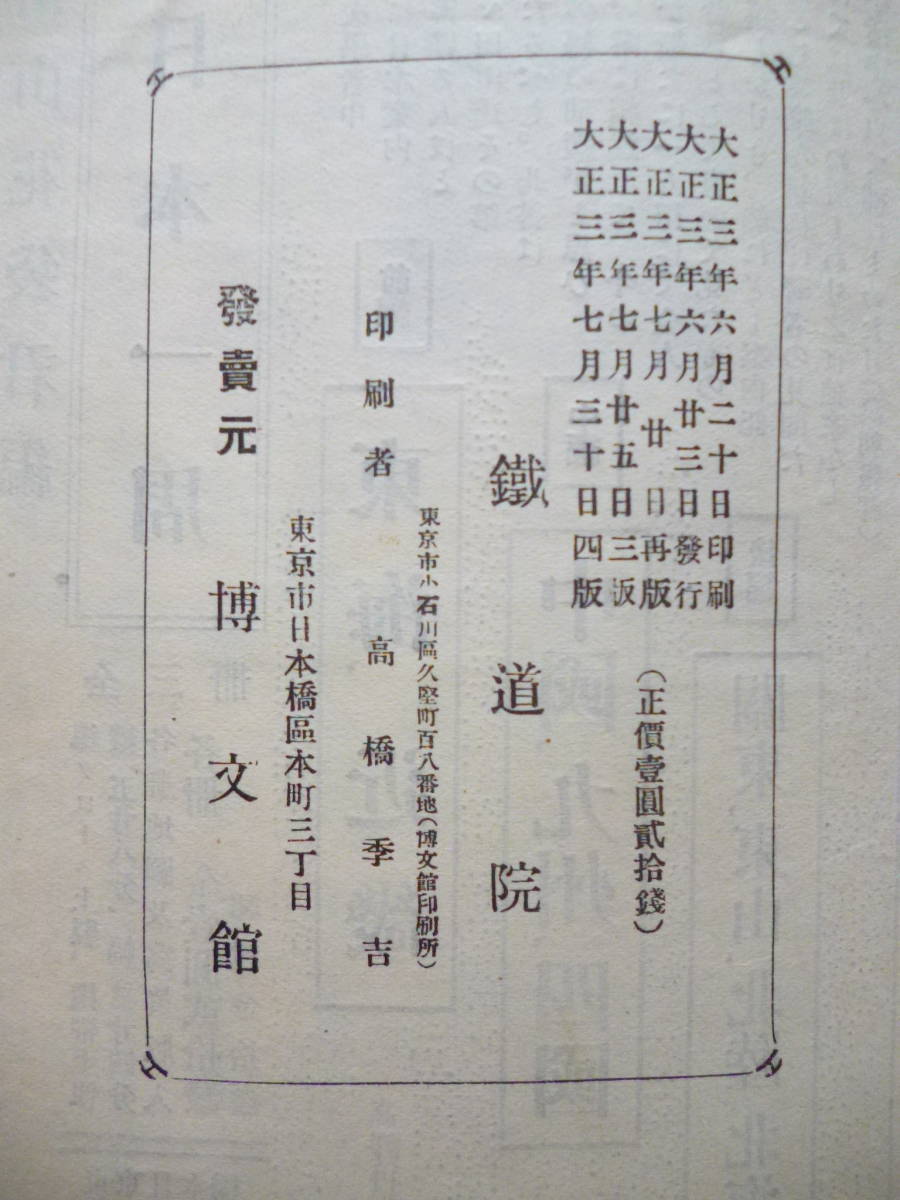 大正三年六月二十日印刷
大正三年六月廿三日發行
大正三年七月廿日再版
大正三年七月廿五日三版
大正三年七月三十日四版
（正價壹圓貳拾錢）
鐵道院
東京市小石川區久堅町百八番地（博文館印刷所）
印刷者 高橋季吉
東京市日本橋區本町三丁目
發賣元 博文館